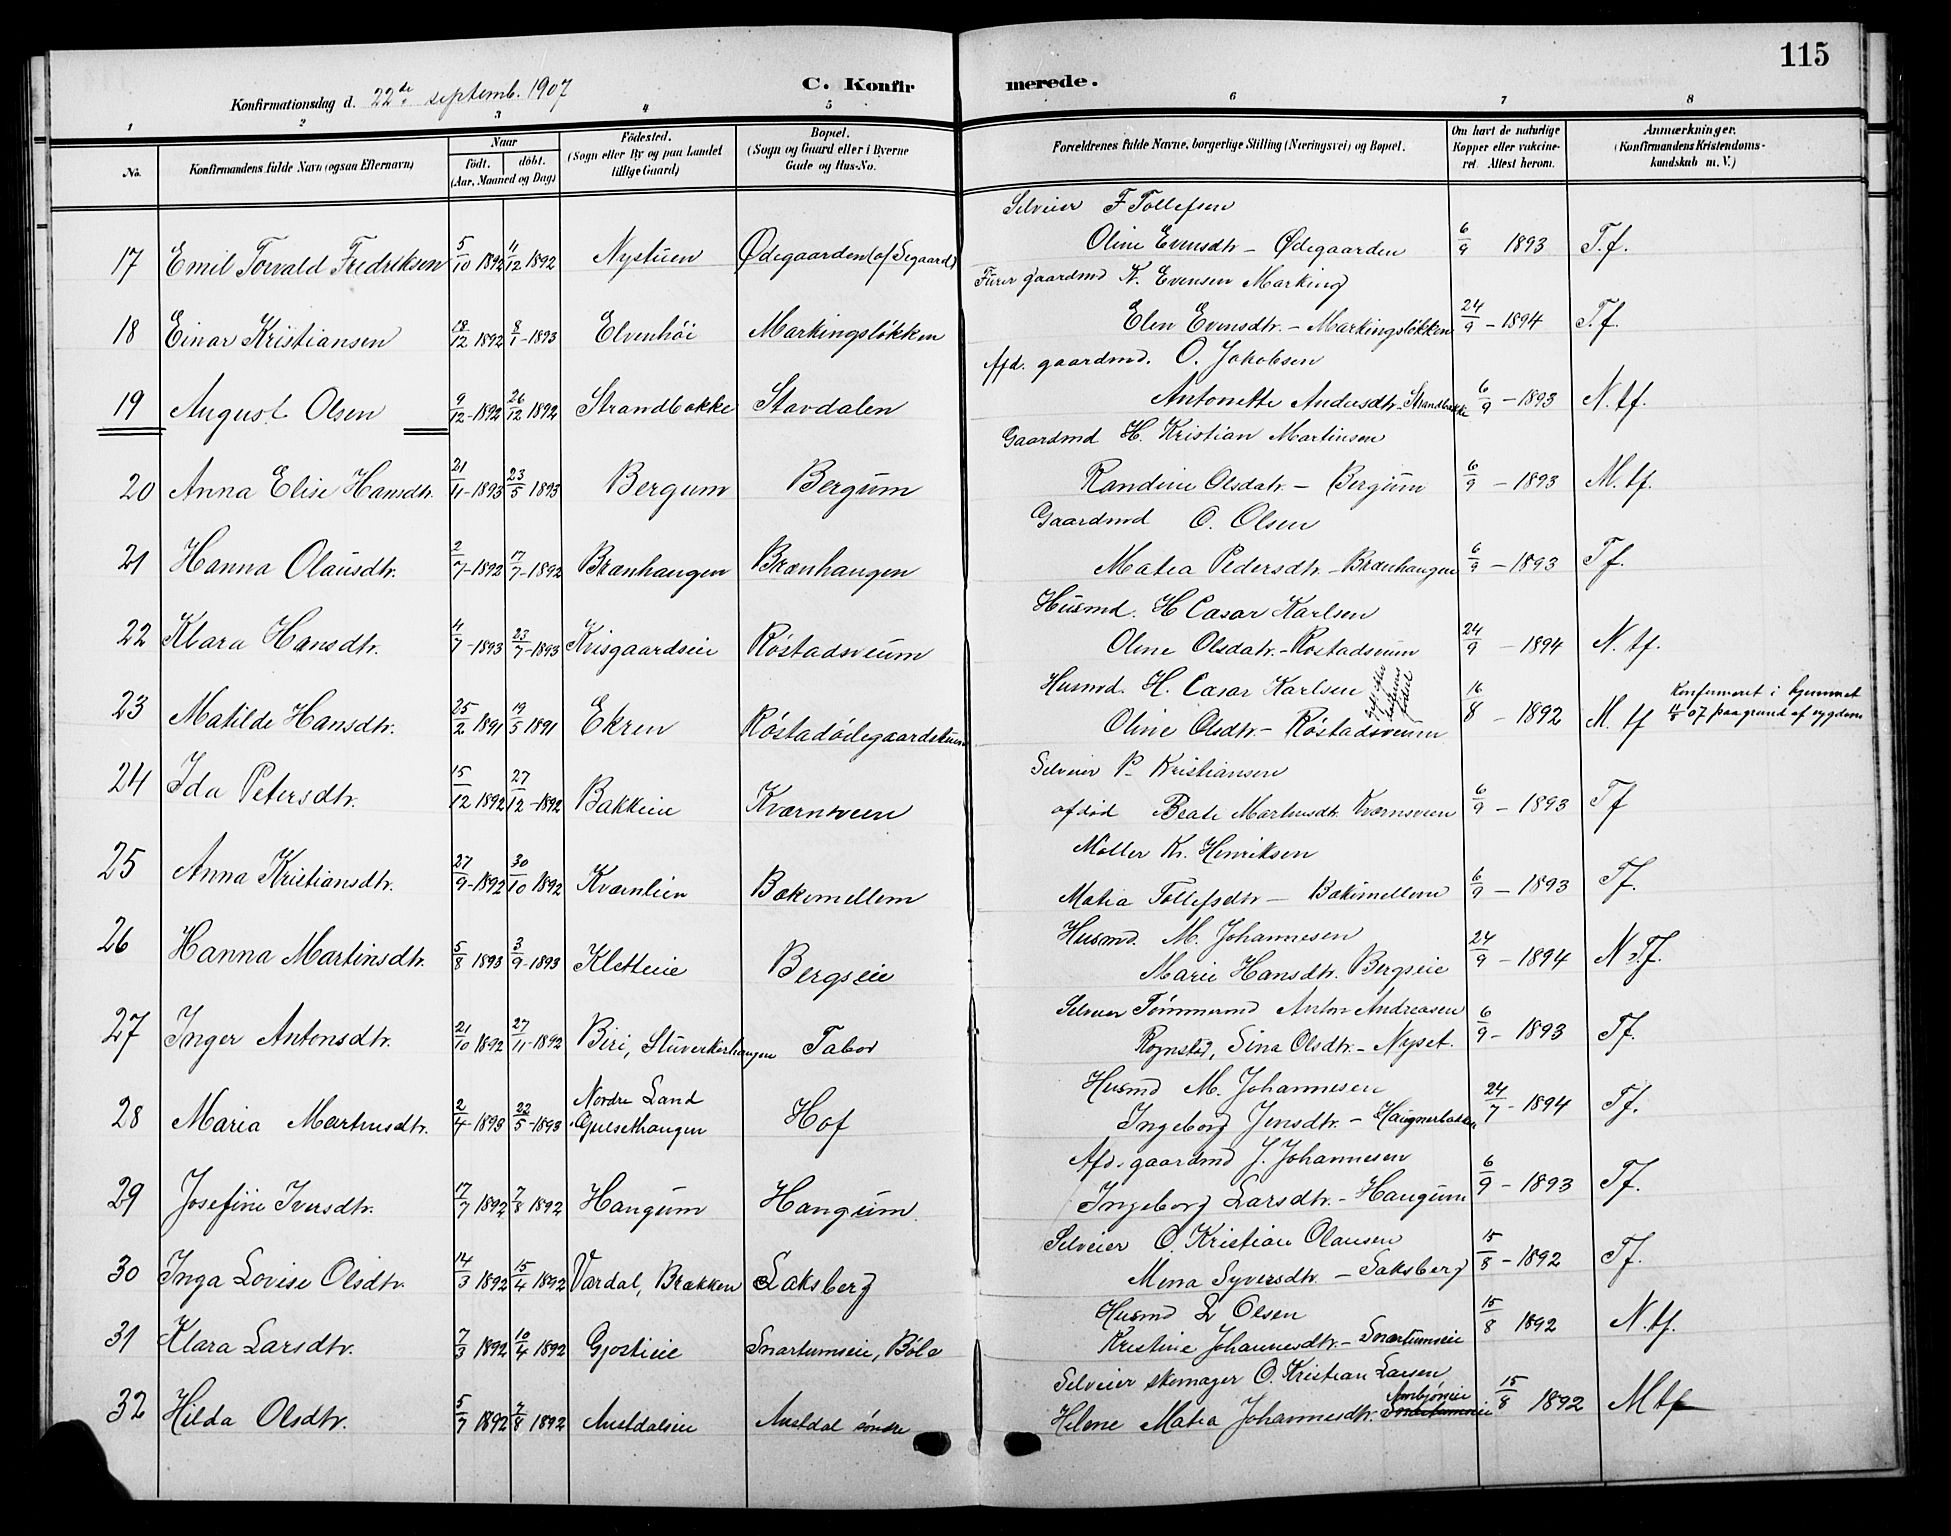 115
Konfirmationsdag d. 22de septemb. 1907
C. Konfirmerede.
1 2 3 4 5 6 7 8
No. Konfirmandens fulde Navn (ogsaa Efternavn) Naar födt. döbt. (Aar, Maaned og Dag) Födested. (Sogn eller By og paa Landet tillige Gaard) Bopæl. (Sogn og Gaard eller i Byerne Gade og Hus-No. Forældrenes fulde Navne, borgerlige Stilling (Næringsvei) og Bopæl. Om havt de naturlige Kopper eller vakcineret. Attest herom. Anmærkninger. (Konfirmandens Kristendomskundskab m. V.)
Selveier F Tollefsen
17 Emil Torvald Fredriksen 5/10 1892 11/12 1892 Nystuen Ødegaarden (of Segaard) Oline Evensdtr - Ødegaarden 6/9 1893 T.f.
Furer gaardmd K. Evensen Marking
18 Einar Kristiansen 18/12 1892 8/1 - 1893 Elvenhöi Markingslökken Elen Evensdtr. - Markingslökken 24/9 - 1894 T.f.
Afd. gaardmd. O. Jakobsen
19 August Olsen 9/12 - 1892 26/12 1892 Strandbakke Stavdalen Antonette Andersdtr - Strandbakke 6/9 - 1893 N. tf.
Gaardmd H. Kristian Martinsen
20 Anna Elise Hansdtr. 21/11 - 1893 23/5 1893 Bergum Bergum Randine Olsdatr. - Bergum 6/9 - 1893 M. tf.
Gaardmd O. Olsen
21 Hanna Olausdtr. 2/7 - 1892 17/7 - 1892 Brænhaugen Brænhaugen Matea Pedersdtr - Brænhaugen 6/9 - 1893 Tf.
Husmd. H Casar Karlsen
22 Klara Hansdtr. 4/7 - 1893 23/7 - 1893 Krisgaardseie Röstadsveum Oline Olsdatr. - Röstadsveum 24/9 - 1894 N. tf.
Husmd. H. Casar Karlsen
23 Matilde Hansdtr. 25/2 1891 19/5 1891 Ekren Oline Olsdtr - Röstadsveum 16/8 - 1892 M. tf Konfirmeret i hjemmet 07 paa grund af sygdom
Selveier P. Kristiansen
24 Ida Petersdtr. 15/12 1892 27/12 - 1892 Bakkeie Kværnsveen afdöd Beate Marthusdtr. Kværnsveen 6/9 - 1893 Tf
Möller Kr. Henriksen
25 Anna Kristiansdtr. 27/9 - 1892 30/10 1892 Kværnlien Bakimellem Matea Tollefsdtr - Bakimellem 6/9 - 1893 Tf.
Husmd. M. Johannesen
26 Hanna Martinsdtr. 5/8 1893 3/9 - 1893 Kletteie Bergseie Marie Hansdtr. Bergseie 24/9 - 1894 N Tf.
Selveier Tömmermd Anton Andreasen
27 Inger Antonsdtr. 21/10 1892 27/11 - 1892 Biri, Stuverkerhaugen Tabor Rognstad, Sina Olsdtr. - Nyset. 6/9 - 1893 Tf.
Husmd M. Johannesen
28 Maria Marthusdtr. 2/4 - 1893 22/5 - 1893 Nordre Land Gulsethaugen Hof Ingeborg Jensdtr. - Haugnerbakken 24/7 - 1894 Tf.
Afd. gaardmd J. Johannesen
29 Josefine Iversdtr. 17/7 1892 7/8 1892 Haugum Haugum Ingeborg Larsdtr. - Haugum 6/9 - 1893 Tf.
Selveier O. Kristian Olausen
30 Inga Lovise Olsdtr. 14/3 1892 15/4 1892 Vardal, Brækken Laksberg Mena Syversdtr. - Laksberg 15/8 - 1892 Tf.
Husmd L Olsen
31 Klara Larsdtr. 7/3 1892 10/4 1892 Gjosteie Snartumseie, Böle Kristine Johannesdtr. - Snartumseie 15/8 1892 N. tf.
Selveier skomager O. Kristian Larsen
32 Hilda Olsdtr. 5/7 1892 7/8 1892 Austdalseie Austdal söndre Helene Matea Johannesdtr. Snartumseie 15/8 1892 M tf